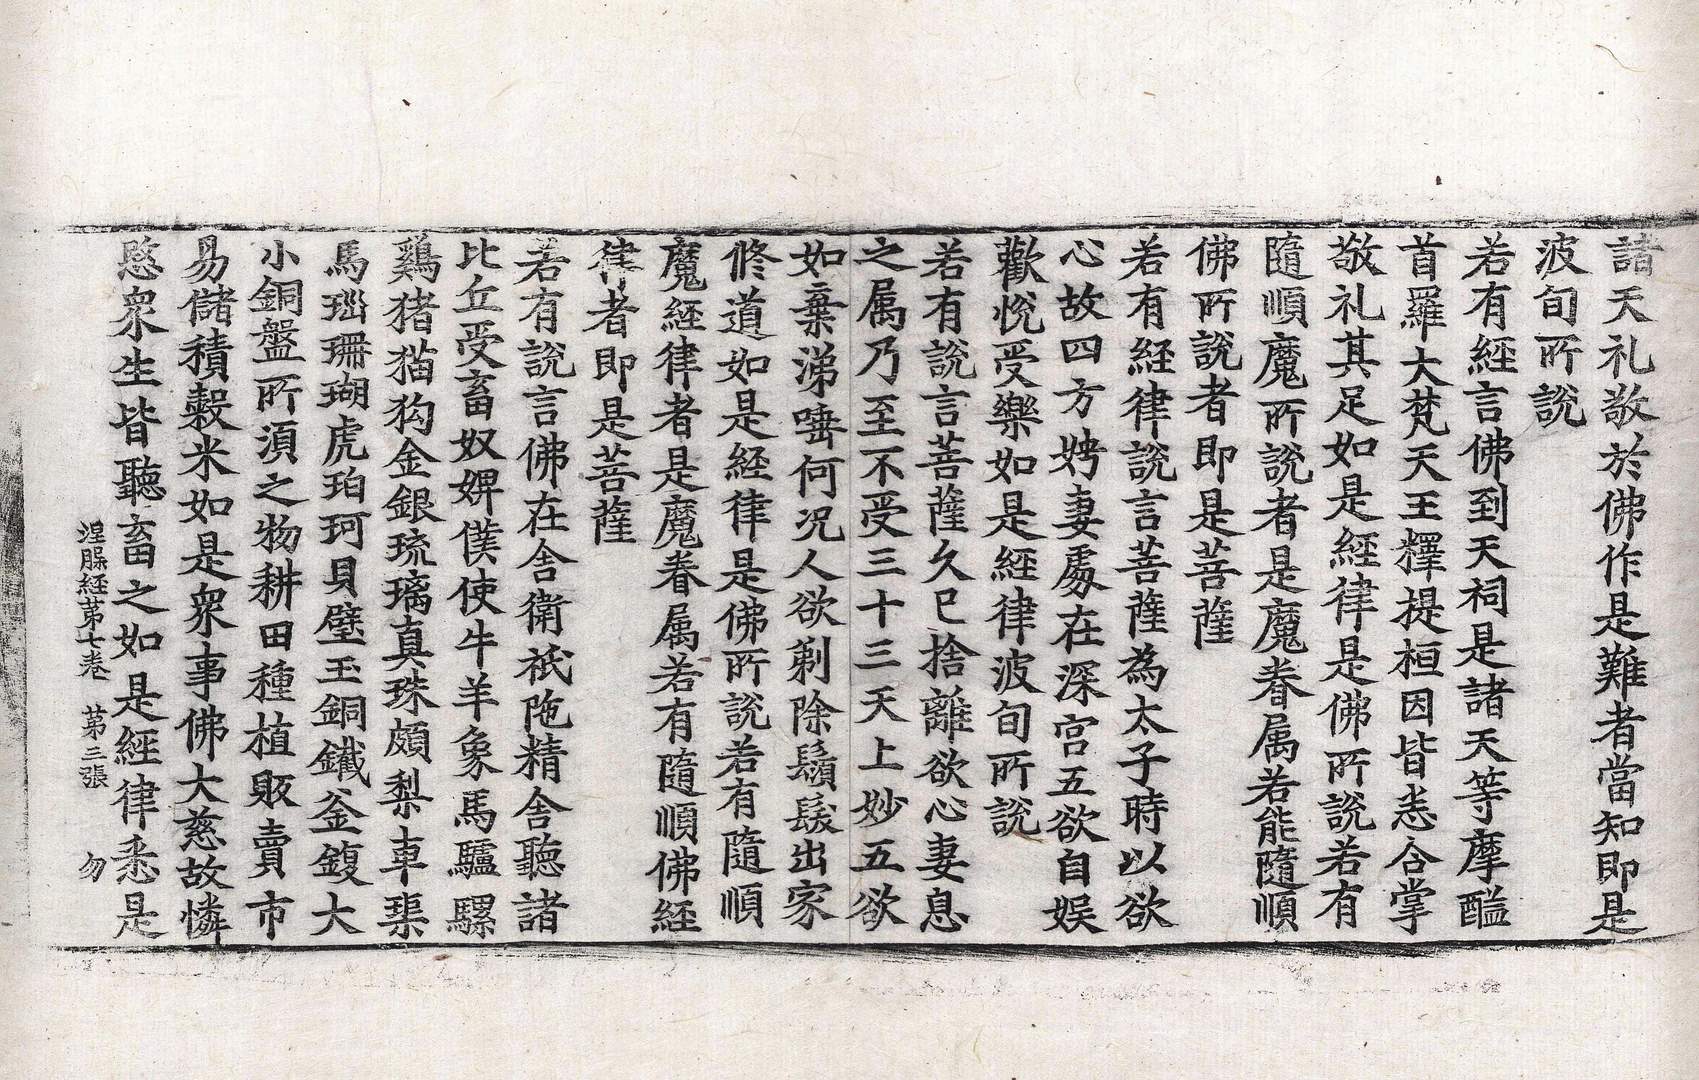 諸天礼敬於佛作是難者當知即是
波旬所說
若有經言佛到天祠是諸天等摩醯
首羅大梵天王釋提桓因皆悉合掌
敬礼其足如是經律是佛所說若有
隨順魔所說者是魔眷属若能隨順
佛所說者即是菩薩
若有經律說言菩薩為太子時以欲
心故四方娉妻處在深宫五欲自娱
歡悅受樂如是經律波旬所說
若有說言菩薩久已捨離欲心妻息
之属乃至不受三十三天上妙五欲
如棄涕唾何况人欲剃除鬚髮出家
修道如是經律是佛所說若有隨順
魔經律者是魔眷属若有隨順佛經
律者即是菩薩
若有說言佛在舍衛祇陁精舍聽諸
比丘受畜奴婢僕使牛羊象馬驢騾
鷄猪猫狗金銀琉璃真珠頗梨車𤦲
馬瑙珊瑚虎珀珂貝璧玉銅鐵釜鍑大
小銅盤所湏之物耕田種植販賣市
易儲積穀米如是衆事佛大慈故憐
愍衆生皆聽畜之如是經律悉是
涅槃經苐七卷 苐三張 勿